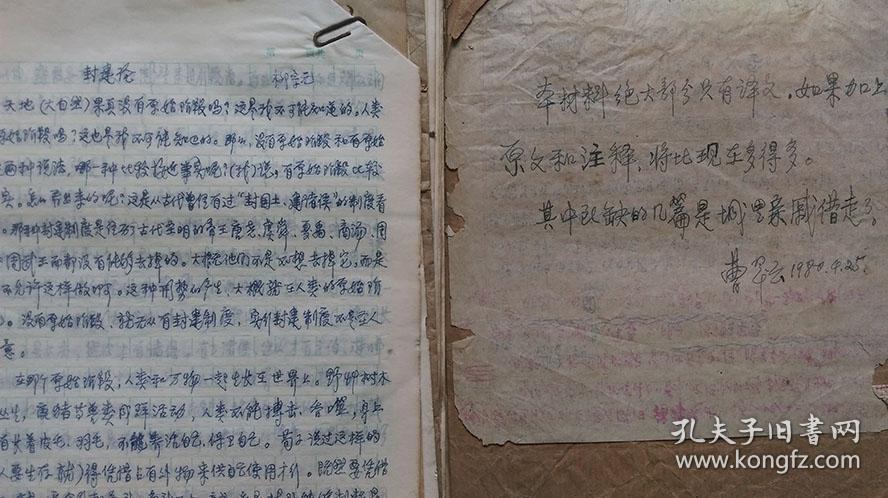 封建论 柳宗元
天地(大自然)果真没有原始阶段吗?这是我不可能知道的。人类
原始阶段吗?这也是我不可能知道的。那么,没有原始阶段和有原始
两种说法,哪一种比较接近事实呢?(我)说,有原始阶段比较
实。怎么看出来的呢?这是从古代曾经有过“封国土、建诸侯”的制度看
那种封建制度是经历了古代圣明的帝王唐尧、虞舜、夏禹、商汤、周
周武王而都没有能够去掉的。大概他们不是不想去掉它,而是
不允许这样做啊。这种形势的产生,大概就在人类的原始阶
。没有原始阶段,就无从有封建制度,实行封建制度不是圣人
意。
在那个原始阶段,人类和万物一起生长在世界上。野草树木
丛生,野猪等兽类成群活动,人类不能搏击、合噬,身上
有长着皮毛、羽毛,不能养活自己、保卫自己。荀子说过这样的
人要生存就)得凭借占有外物来供自己使用才行。既然要凭借
本材料绝大部分只有译文,如果加上
原文和注释,将比现在多得多。
其中所缺的几篇是城里亲戚借走了。
曹 1980.4.25.
孔夫子旧书网
www.kongfz.com